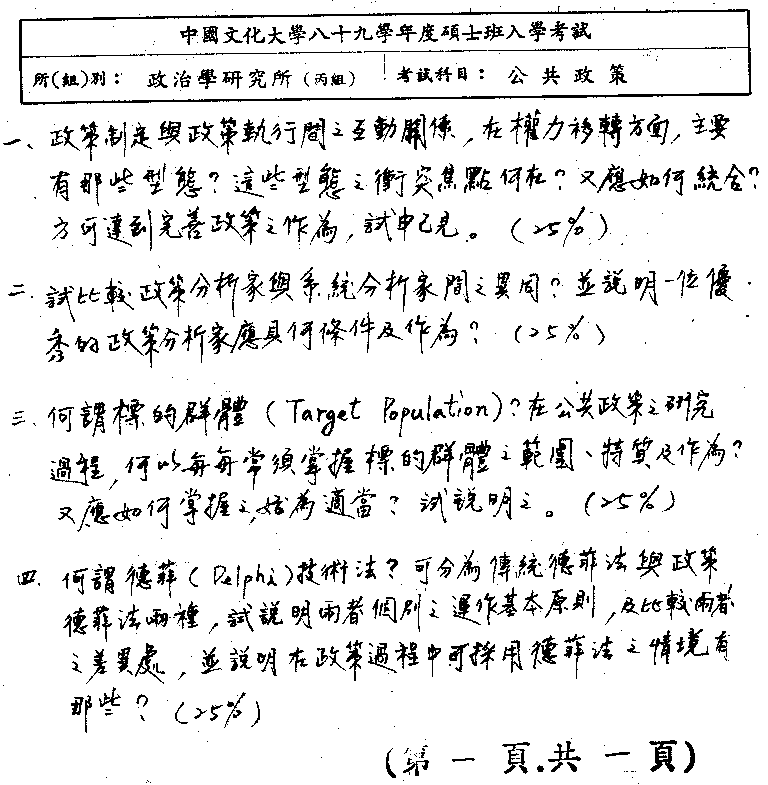 中國文化大學八十九學年度碩士班入學考試
所(組)別：政治學研究所（丙組） 考試科目：公共政策
一、政策制定與政策執行間之互動關係，在權力移轉方面，主要
有那些型態？這些型態之衝突焦點何在？又應如何統合？
方可達到完善政策之作為，試申己見。(25%)
二、試比較政策分析家與系統分析家間之異同？並說明一位優
秀的政策分析家應具何條件及作為？(25%)
三、何謂標的群體（Target Population）？在公共政策之研究
過程，何以每每常須掌握標的群體之範圍、特質及作為？
又應如何掌握之，始為適當？試說明之。(25%)
四、何謂德菲（Delphi）技術法？可分為傳統德菲法與政策
德菲法兩種，試說明兩者個別之運作基本原則，及比較兩者
之差異處，並說明在政策過程中可採用德菲法之情境有
那些？(25%)
(第一頁.共一頁)